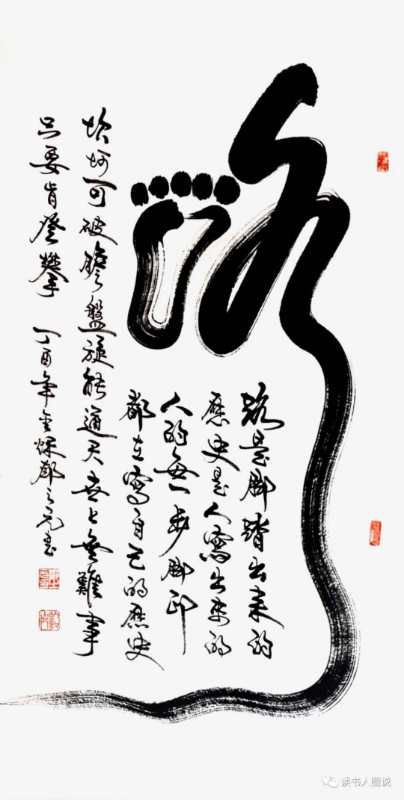 路
路是脚踏出来的
歷史是人寫出来的
人的每一步脚印
都在寫自己的歷史
坎坷可破膽盤旋能通天世上無難事
只要肯登攀 丁酉年金秋 之元书
读书人圈说